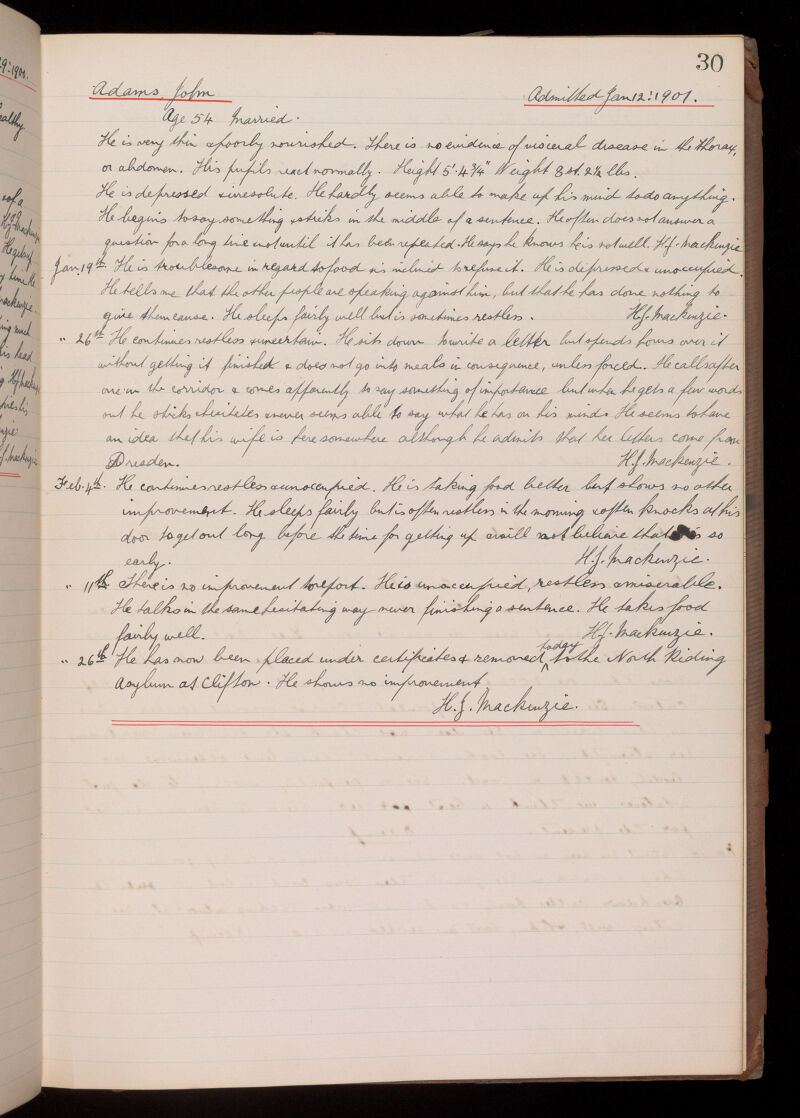 30
Adams, John
Admitted Jan 12: 1901.
Age 54 Married.
He is very thin & poorly nourished. There is no evidence of visceral disease in the Thorax,
or abdomen. His pupils react normally. Height 5'. 4 3/4" Weight 8 st. 2 1/2 lbs.
He is depressed & irresolute. He hardly seems able to make up his mind to do anything.
He begins to say something & sticks in the middle of a sentence. He often does not answer a
question for a long time & not until it has been repeated. He says he knows he is not well. H.J. Mackenzie
Jan. 19th. He is troublesome in regard to food & is inclined to refuse it. He is depressed & unoccupied.
He tells me that the other people are speaking against him, but that he has done nothing to
give them cause. He sleeps fairly well but is sometimes restless. H.J. Mackenzie.
" 26th He continues restless & uncertain. He sits down to write a letter but spends hours over it
without getting it finished & does not go into meals in consequence, unless forced. He calls after
one in the corridor & comes apparently to say something of importance but when he gets a few words
out he sticks & hesitates & never seems able to say what he has on his mind. He seems to have
an idea that his wife is here somewhere although he admits that her letters come from
Dresden. H.J. Mackenzie.
Feb. 4th. He continues restless & unoccupied. He is taking food better but shows no other
improvement. He sleeps fairly but is often restless in the morning & often knocks at his
door to get out long before the time for getting up & will not believe that is so
early. H.J. Mackenzie.
" 11th. There is no improvement to report. He is unoccupied, restless & miserable.
He talks in the same hesitating way never finishing a sentence. He takes food
fairly well. H.J. Mackenzie.
" 26th He has now been placed under certificates & removed today to the North Riding
Asylum at Clifton. He shows no improvement
H.J. Mackenzie.